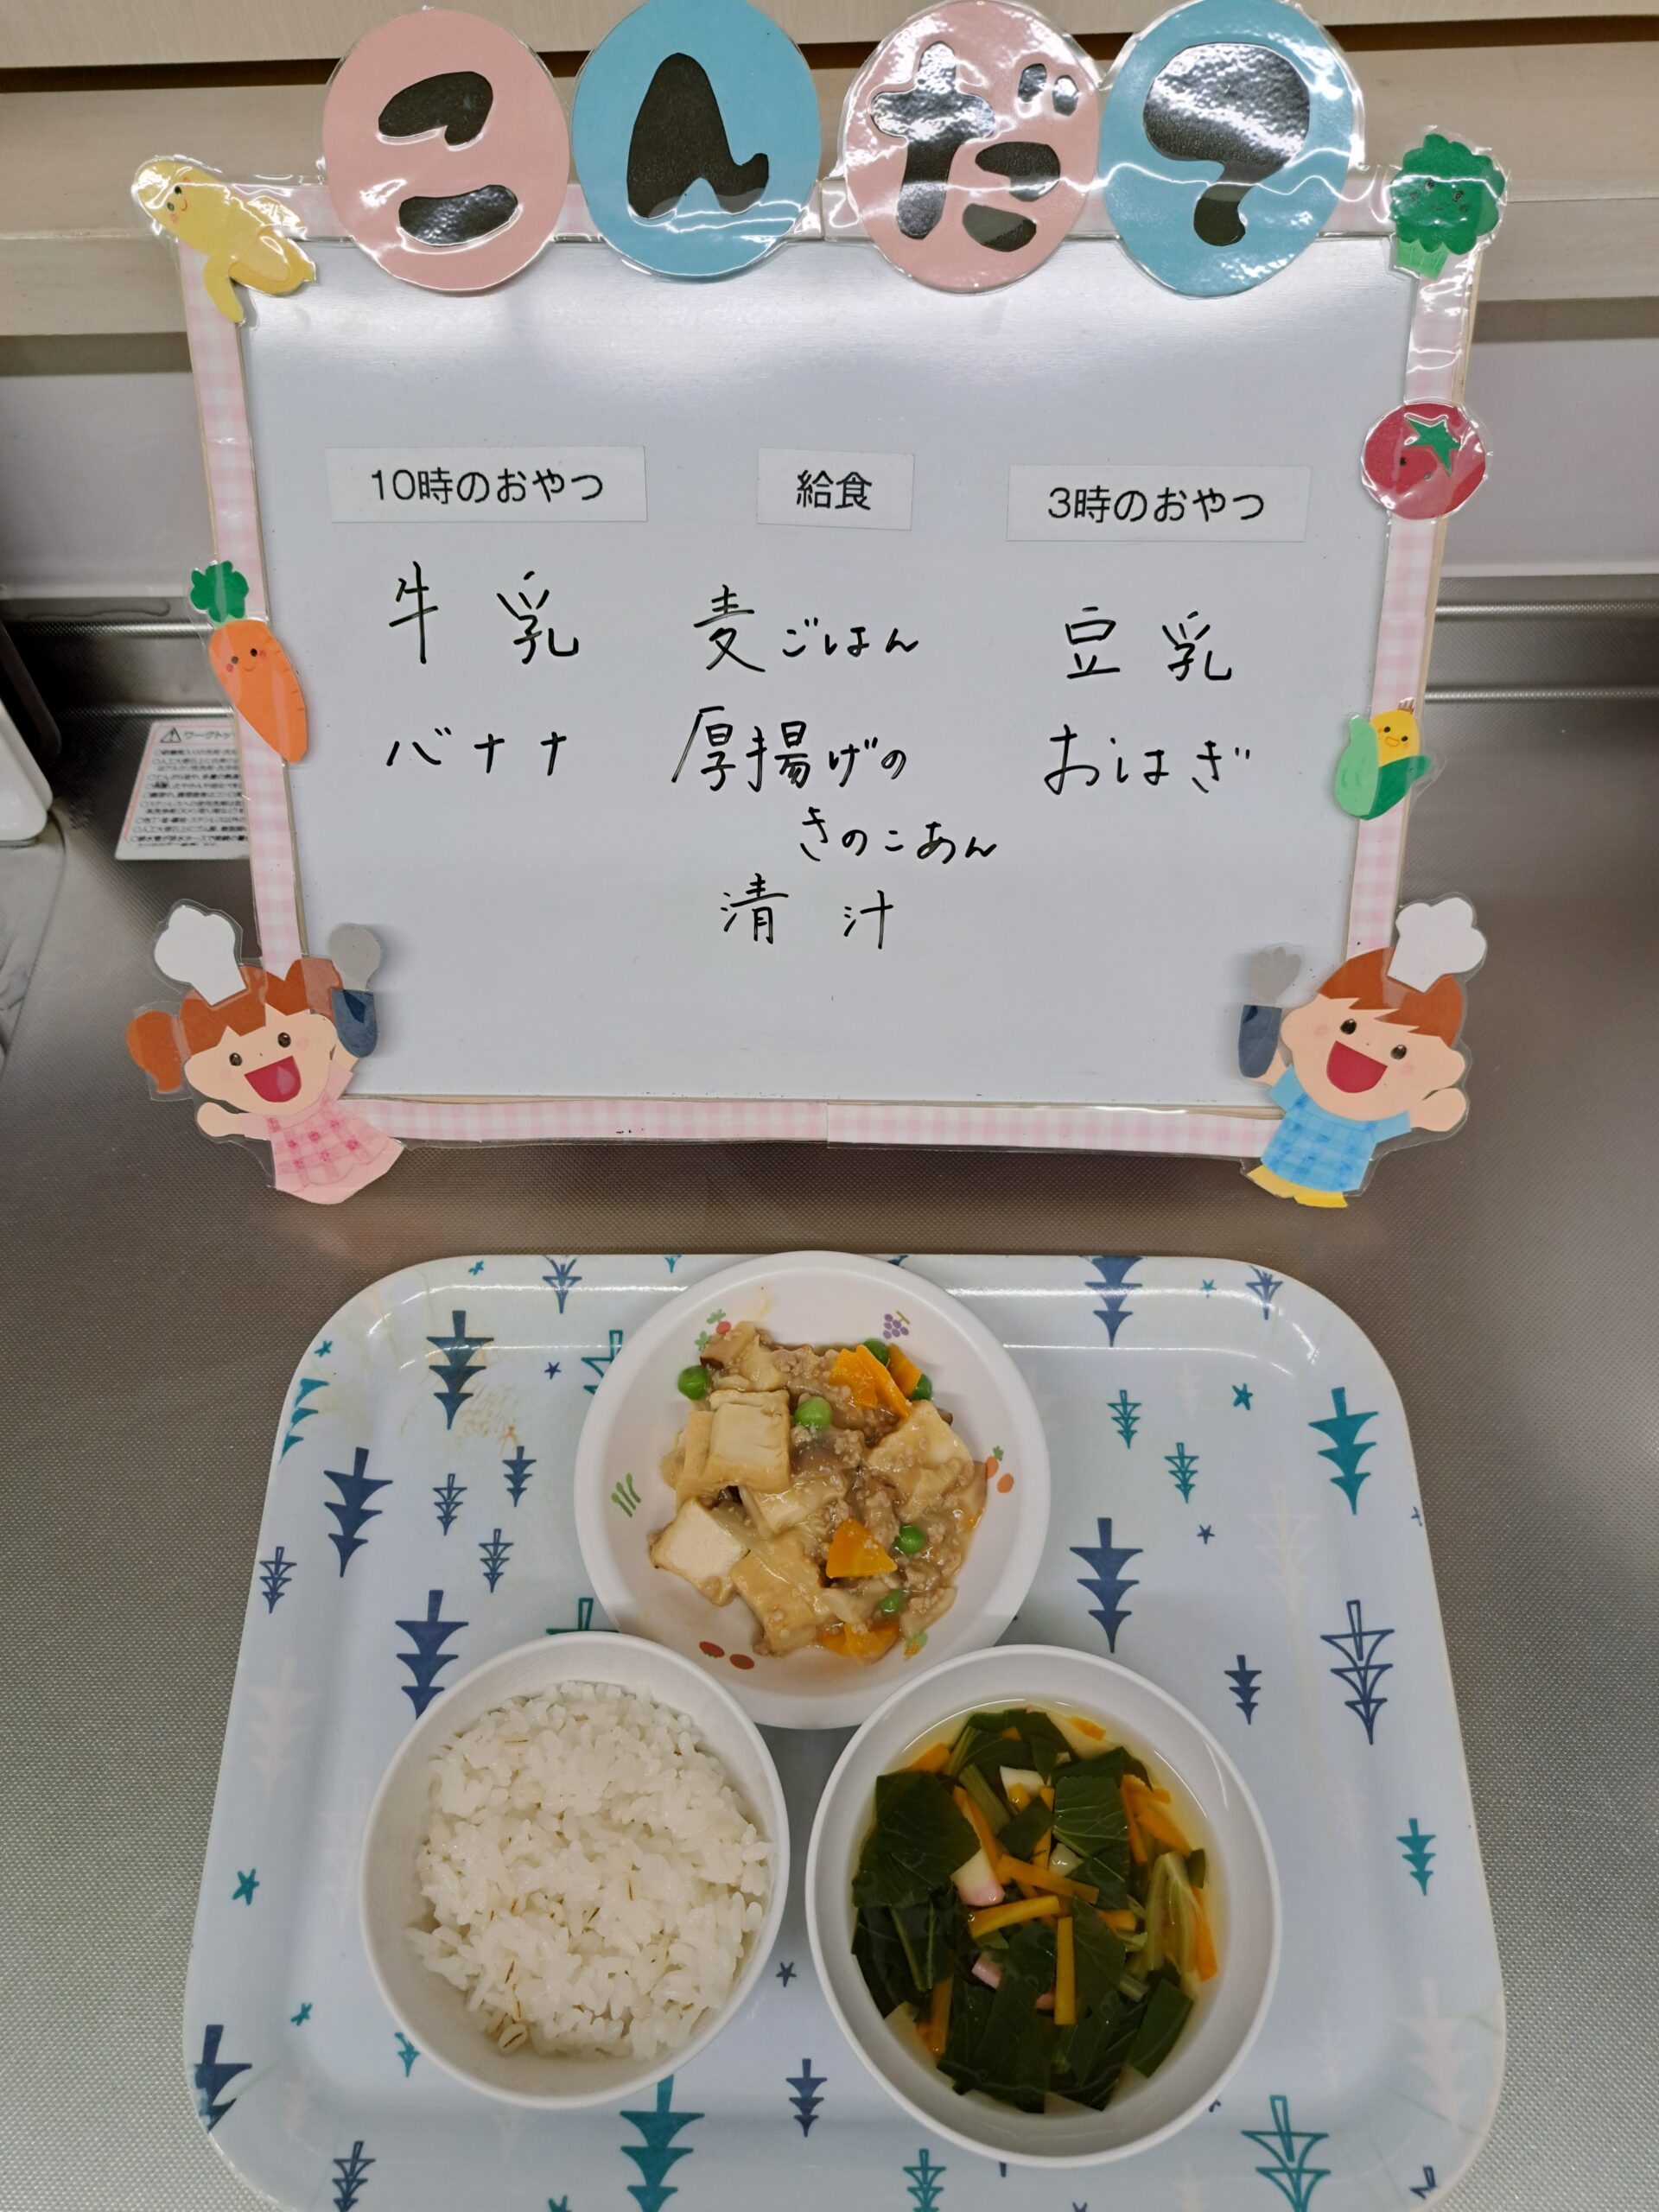 こんだて
10時のおやつ
給食
3時のおやつ
牛乳
麦ごはん
豆乳
バナナ
厚揚げの
おはぎ
きのこあん
清汁
ワークトッ